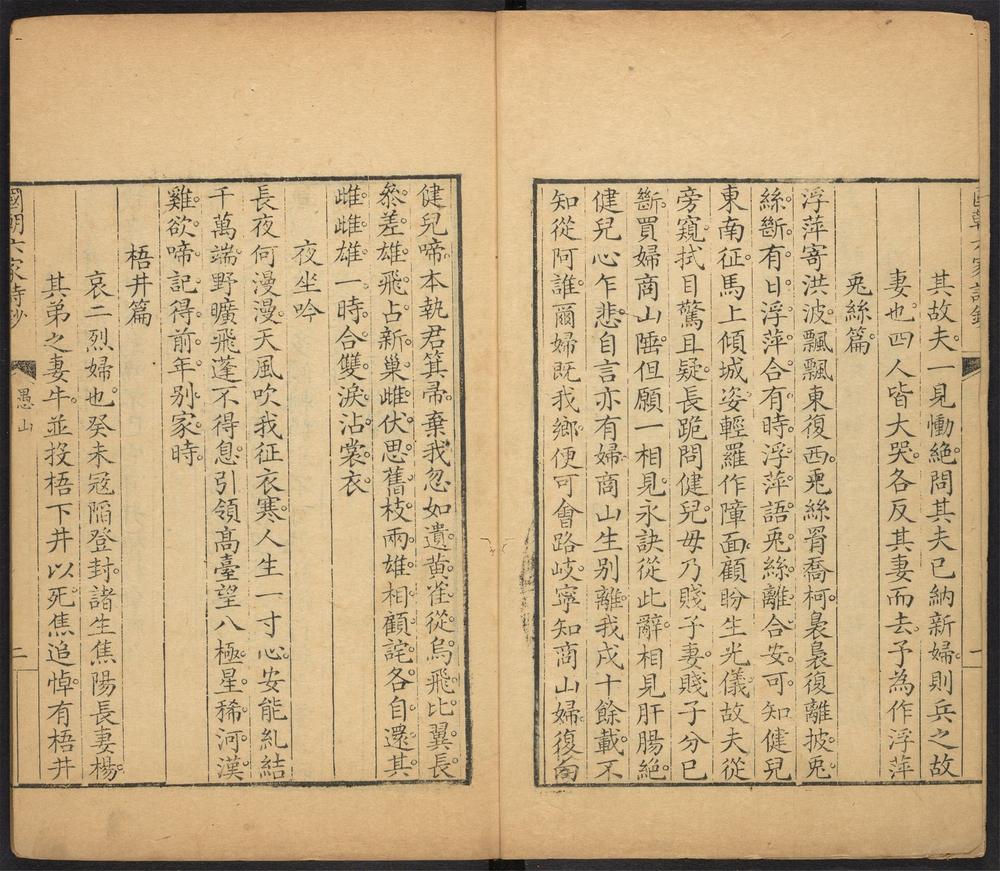 其故夫一見慟絶問其夫已納新婦則兵之故
妻也四人皆大哭各反其妻而去予為作浮萍
兎絲篇
浮萍寄洪波飄飄東復西兎絲罥喬柯裊裊復離披兎
絲斷有日浮萍合有時浮萍語兎絲離合安可知健兒
東南征馬上傾城姿輕羅作障面顧盼生光儀故夫從
旁窺拭目驚且疑長跪問健兒毋乃賤子妻賤子分已
斷買婦商山陲但願一相見永訣從此辭相見肝腸絶
健兒心乍悲自言亦有婦商山生别離我戍十餘載不
知從阿誰爾婦既我鄉便可會路歧寧知商山婦復向
一
健兒啼本執君箕帚棄我忽如遺黄雀從烏飛比翼長
叅差雄飛占新巢雌伏思舊枝兩雄相顧詫各自還其
雌雌雄一時合雙淚沾裳衣
夜坐吟
長夜何漫漫天風吹我征衣寒人生一寸心安能糺結
千萬端野曠飛蓬不得息引領高臺望八極星稀河漢
雞欲啼記得前年别家時
梧井篇
哀二烈婦也癸未冦陷登封諸生焦陽長妻楊
其弟之妻牛並投梧下井以死焦追悼有梧井
國朝六家詩鈔
愚山
二